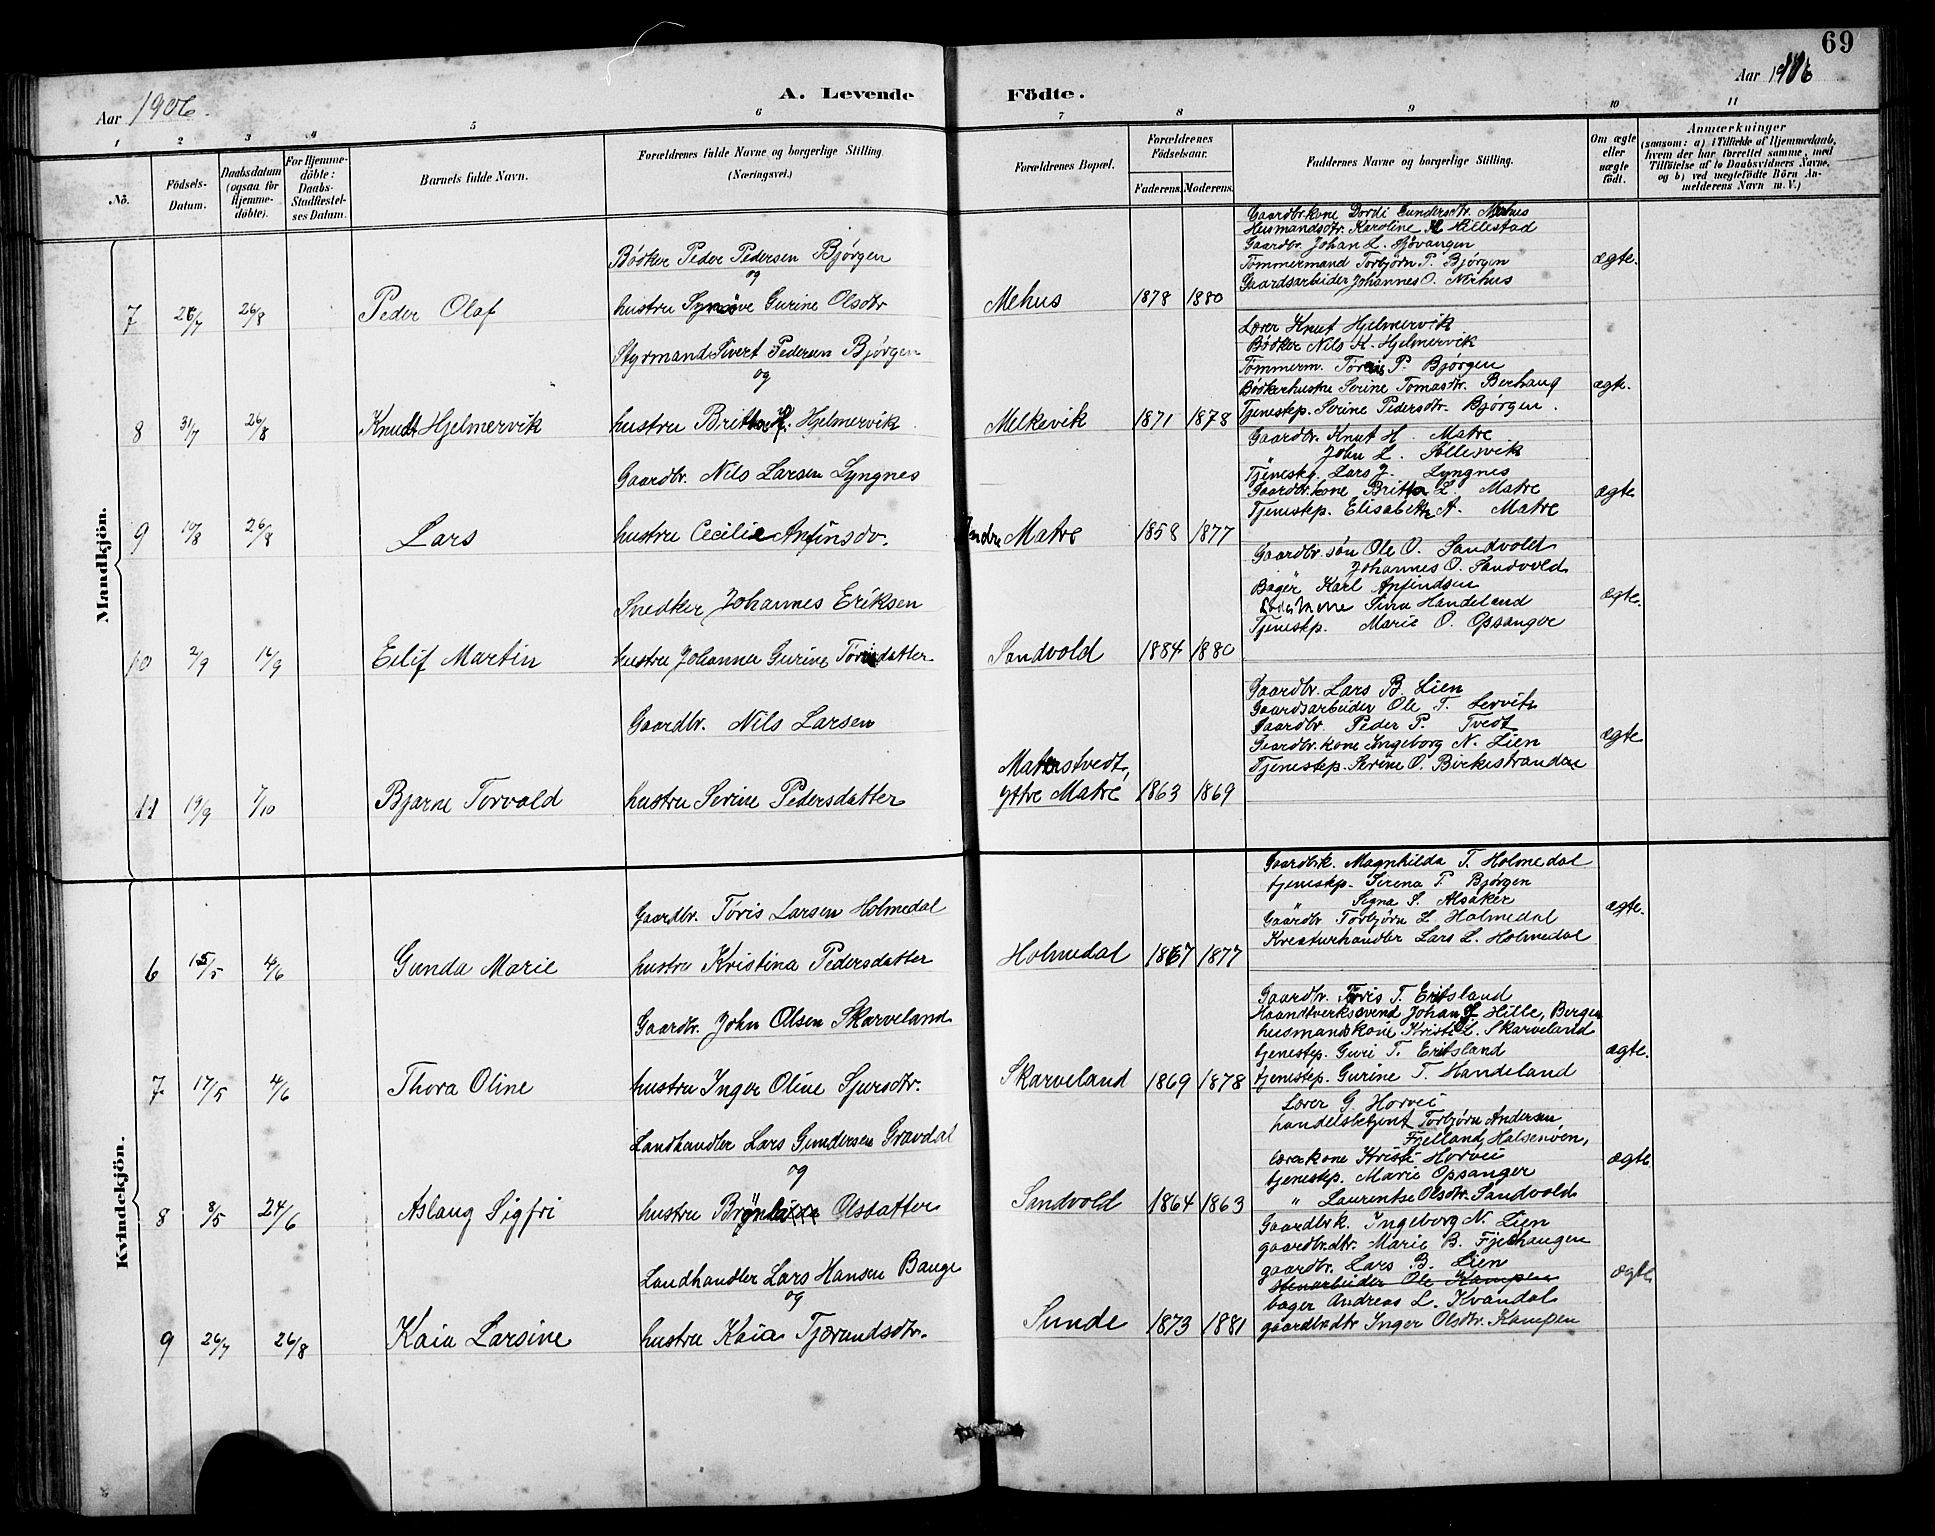 69
Aar 1906.
A. Levende Födte.
Aar 1906
1 2 3 4 5 6 7 8 9 10 11
No.
Födsels-Datum.
Daabsdatum (ogsaa for Hjemme-döbte).
For Hjemme-döbte: Daabs-Stadfæstel-ses Datum.
Barnets fulde Navn.
Forældrenes fulde Navne og borgerlige Stilling. (Næringsvei.)
Forældrenes Bopæl.
Forældrenes Födselsaar.
Faderens. Moderens.
Faddernes Navne og borgerlige Stilling.
Om ægte eller uægte födt.
Anmærkninger
(saasom: a) i Tilfælde af Hjemmedaab, hvem der har forrettet samme, med Tilföielse af to Daabsvidners Navne, og b) ved uægtefödte Börn An-melderens Navn m. V.)
Mandkjön.
7 26/8 Peder Olaf
Bödker Peder Pedersen Bjørgen
og
hustru Synöve Gurine Olsdtr
Mehus 1878 1880
Gaardbr.kone Dordi Gundersdtr. Mehus
Husmandsdtr. Karoline Hillestad
Gaardbr. Johan L.
Tømmermand Torbjørn P. Bjørgen
Gaardsarbeider Johannes O. Nærhus
ægte.
8 31/7 26/8 Knudt Hjelmervik
Styrmand Sivert Pedersen Bjørgen
og
hustru Britta K. Hjelmervik
Melkevik 1871 1878
Lærer Knut Hjelmervik
Bødker Nils K. Hjelmervik
Tømmerm. Tøris P. Bjørgen
Bödkerhustru Serine Tomasdtr. Berhaug
Tjenestep. Serine Pedersdtr. Bjørgen.
ægte.
9 10/8 26/8 Lars
Gaardbr. Nils Larsen Lyngnes
hustru Cecilie Anfinsdtr.
Indre Matre 1858 1877
Gaardbr. Knut H. Matre
" John L. Sollesvik
Tjenestkg. Lars J. Lyngnes
Gaardbr.kone Britta L. Matre
Tjenestep. Elisabeth A. Matre
ægte
10 2/9 Eilif Martin
Snedker Johannes Eriksen
hustru Johanna Gurine Törisdatter
Sandvold 1884 1880
Gaardbr. søn Ole O. Sandvold
" Johannes O. Sandvold
Bager Karl Anfindsen
Sina Handeland
Tjenestep. Marie O. Opsanger
ægte.
11 19/9 7/10 Bjarne Torvald
Gaardbr. Nils Larsen
hustru Serine Pedersdatter
Materstvedt,
Yttre Matre 1863 1869
Gaardbr. Lars B. Lien
Gaardsarbeider Ole T. Lervik
Gaardbr. Peder P. Tvedt
Gaardbr.kone Ingeborg N. Lien
Tjenestep. Serine O. Birkestranden
ægte
Kvindekjön.
6 15/5 4/6 Gunda Marie
Gaardbr. Töris Larsen Holmedal
hustru Kristina Pedersdatter
Holmedal 1867 1877
Gaardbrk. Magnhilda T. Holmedal
tjenestep. Serena P. Bjørgen
" Signa S. Alsaker
Gaardbr Torbjørn L. Holmedal
Kreaturhandler Lars L. Holmedal
ægte.
7 17/5 4/6 Thora Oline
Gaardbr. John Olsen Skarveland
hustru Inger Oline Sjursdtr.
Skarveland 1869 1878
Gaardbr. Töris T. Eritsland
Haandtverksvend Johan J. Hille, Bergen
husmandskone Kristi L. Skarveland
tjenestep. Guri T. Eritsland
tjenestep. Gurine T. Handeland
ægte.
8 8/5 24/6 Aslaug Sigfri
Landhandler Lars Gundersen Gravdal
og
hustru Olsdatter
Sandvold 1864 1863
Lærer G. Horvei
handelsbetjent Torbjørn Andersen
Fjelland, Halsenöen,
lærerkone Kristi Horvei
tjenestep. Marie Opsanger
" Laurentse Olsdtr. Sandvold
ægte
9 26/7 26/8 Kaia Larsine
Landhandler Lars Hansen Bauge
og
hustru Kaia Tjærandsdtr.
Sunde 1873 1881
Gaardbrk. Ingeborg N. Lien
gaardbr.dtr. Marie B. Fjelhaugen
gaardbr. Lars B. Lien
stenarbeider Ole Kampen
bager Andreas L. Kvandal
gaardbrdtr Inger Olsdtr. Kampen
ægte